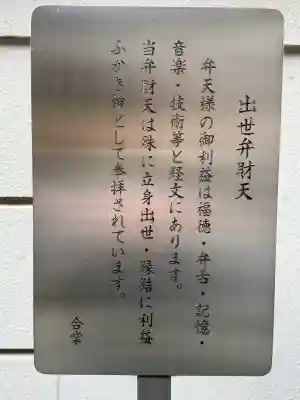 出世弁財天
弁天様の御利益は福徳・弁舌・記憶・
音楽・技術等と経文にあります。
当弁財天は殊に立身出世・縁結に利益
ふかき神として参拝されています。
合掌